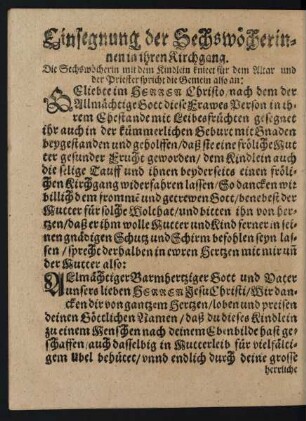 Einsegnung der Sechswöcherin-
nen in ihren Kirchgang.
Die Sechswöcherin mit dem Kindlein kniet für dem Altar und
der Priester spricht die Gemein also an:
GEliebte im HERREN Christo / nach dem der
Allmächtige Gott diese Frawes Person in ih-
rem Ehestande mit Leibesfrüchten gesegnet
ihr auch in der kümmerlichen Geburt mit Gnaden
beygestanden und geholffen / daß sie eine fröliche Mut
ter gesunder Frucht geworden / dem Kindlein auch
die selige Tauff und ihnen beyderseits einen fröli-
chen Kirchgang widerfahren lassen / So dancken wir
billich dem frommē und getrewen Gott / benebest der
Mutter für solche Wolthat / und bitten ihn von her-
tzen / daß er ihm wolle Mutter und Kind ferner in sei-
nen gnädigen Schutz und Schirm befohlen seyn las-
sen / sprecht derhalben in ewren Hertzen mit mir un
der Mutter also:
ALmächtiger Barmhertziger Gott und Vater
unsers lieben HERREN Jesu Christi / Wir dan-
cken dir von gantzem Hertzen / loben und preisen
deinen Göttlichen Namen / daß du dieses Kindlein
zu einem Menschen nach deinem Ebenbilde hast ge-
schaffen / auch dasselbig in Mutterleib für vielfälti-
gem übel behütet / vnnd endlich durch deine grosse
herrliche